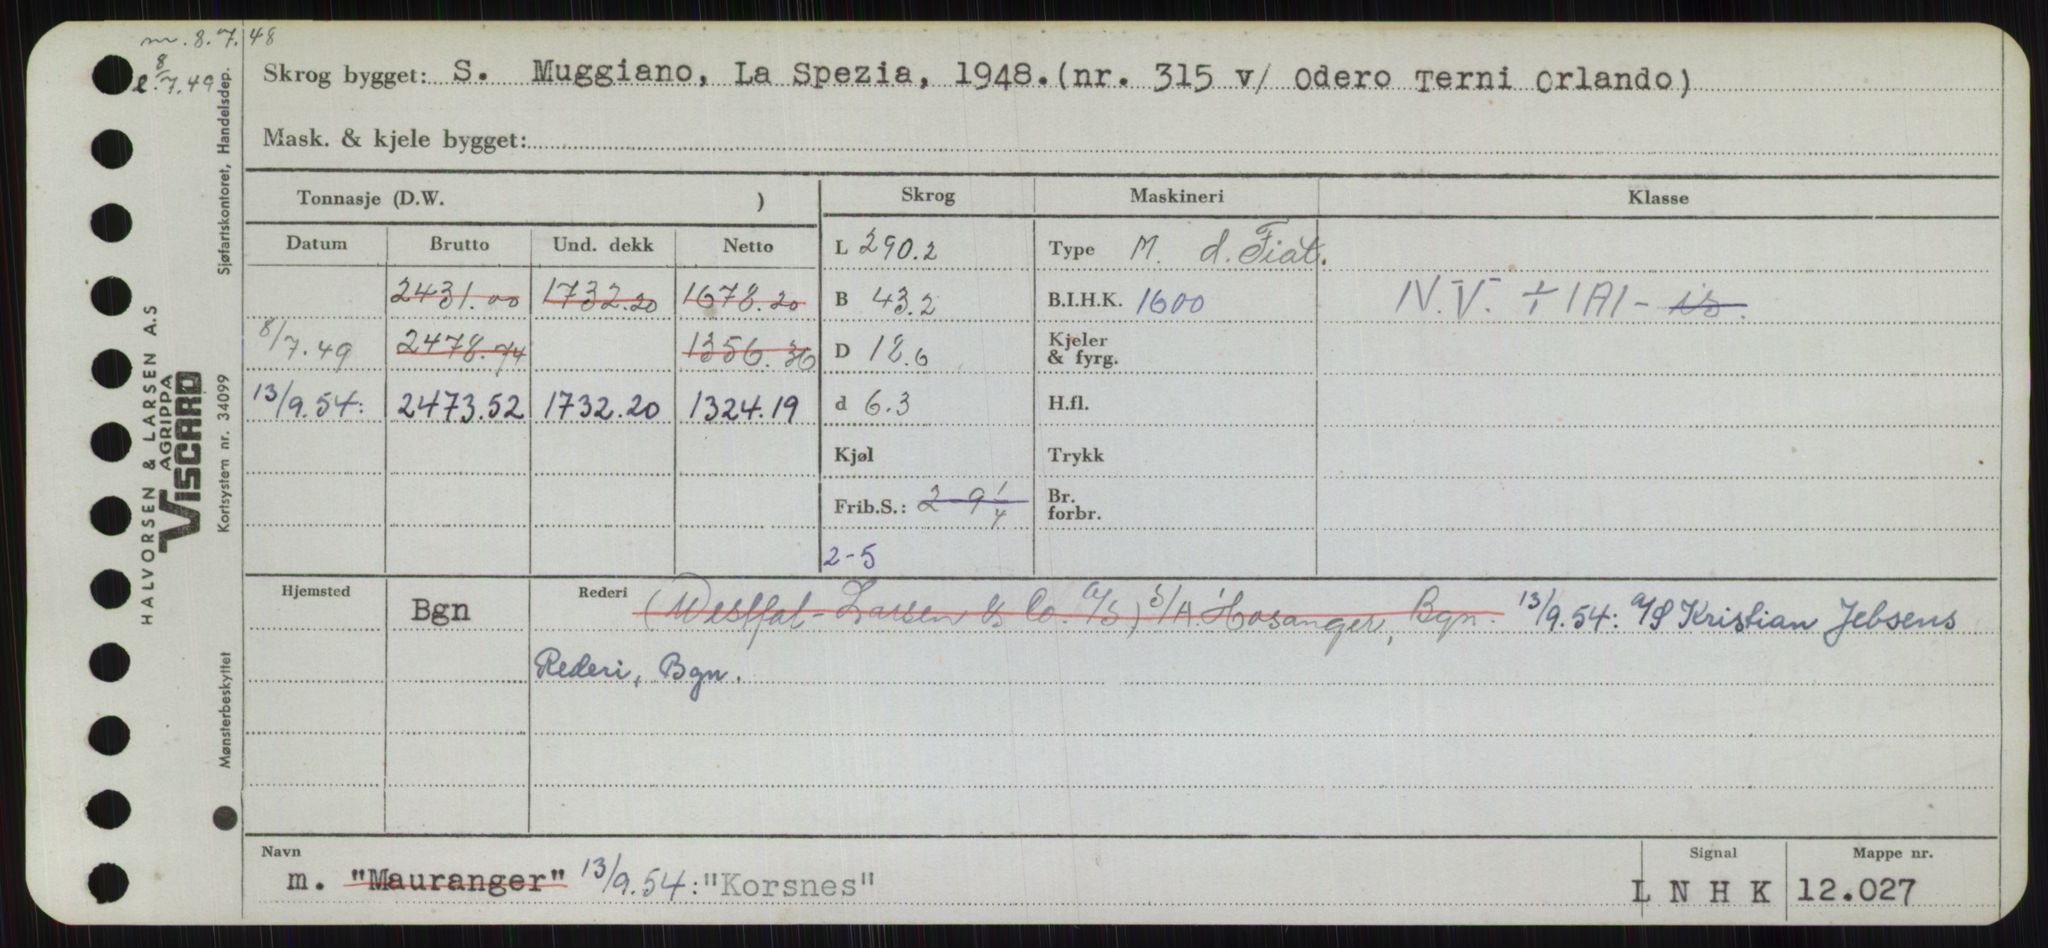 m. 8.7.48
8
l. 7.49
Skrog bygget: S. Muggiano, La Spezia, 1948.(nr. 315 v/ Odero Terni Orlando)
Mask. & kjele bygget:
Tonnasje (D.W. )
Skrog
Maskineri
Klasse
Datum Brutto Und. dekk Netto
L 290.2
Type M. d. Fiat.
2431.00 1732.20 1678.20
B 43.2
B.I.H.K. 1600
N.V. + 1A1 - is.
8/7.49 2478.74 1356.36
D 18.6
Kjeler
& fyrg.
13/9.54: 2473.52 1732.20 1324.19
d 6.3
H.fl.
Kjøl
Trykk
Frib.S.: 2-9 1/4
Br.
forbr.
2-5
Hjemsted Bgn
Rederi (Westfal-Larsen & Co. A/S) S/A Hosanger, Bgn. 13/9.54: A/S Kristian Jebsens
Rederi, Bgn.
Navn
Signal
Mappe nr.
m. "Mauranger" 13/9.54: "Korsnes"
L N H K
12.027
HALVORSEN & LARSEN A.S
AGRIPPA
VISCARD
Sjøfartskontoret, Handelsdep.
Kortsystem nr. 34099
Mønsterbeskyttet